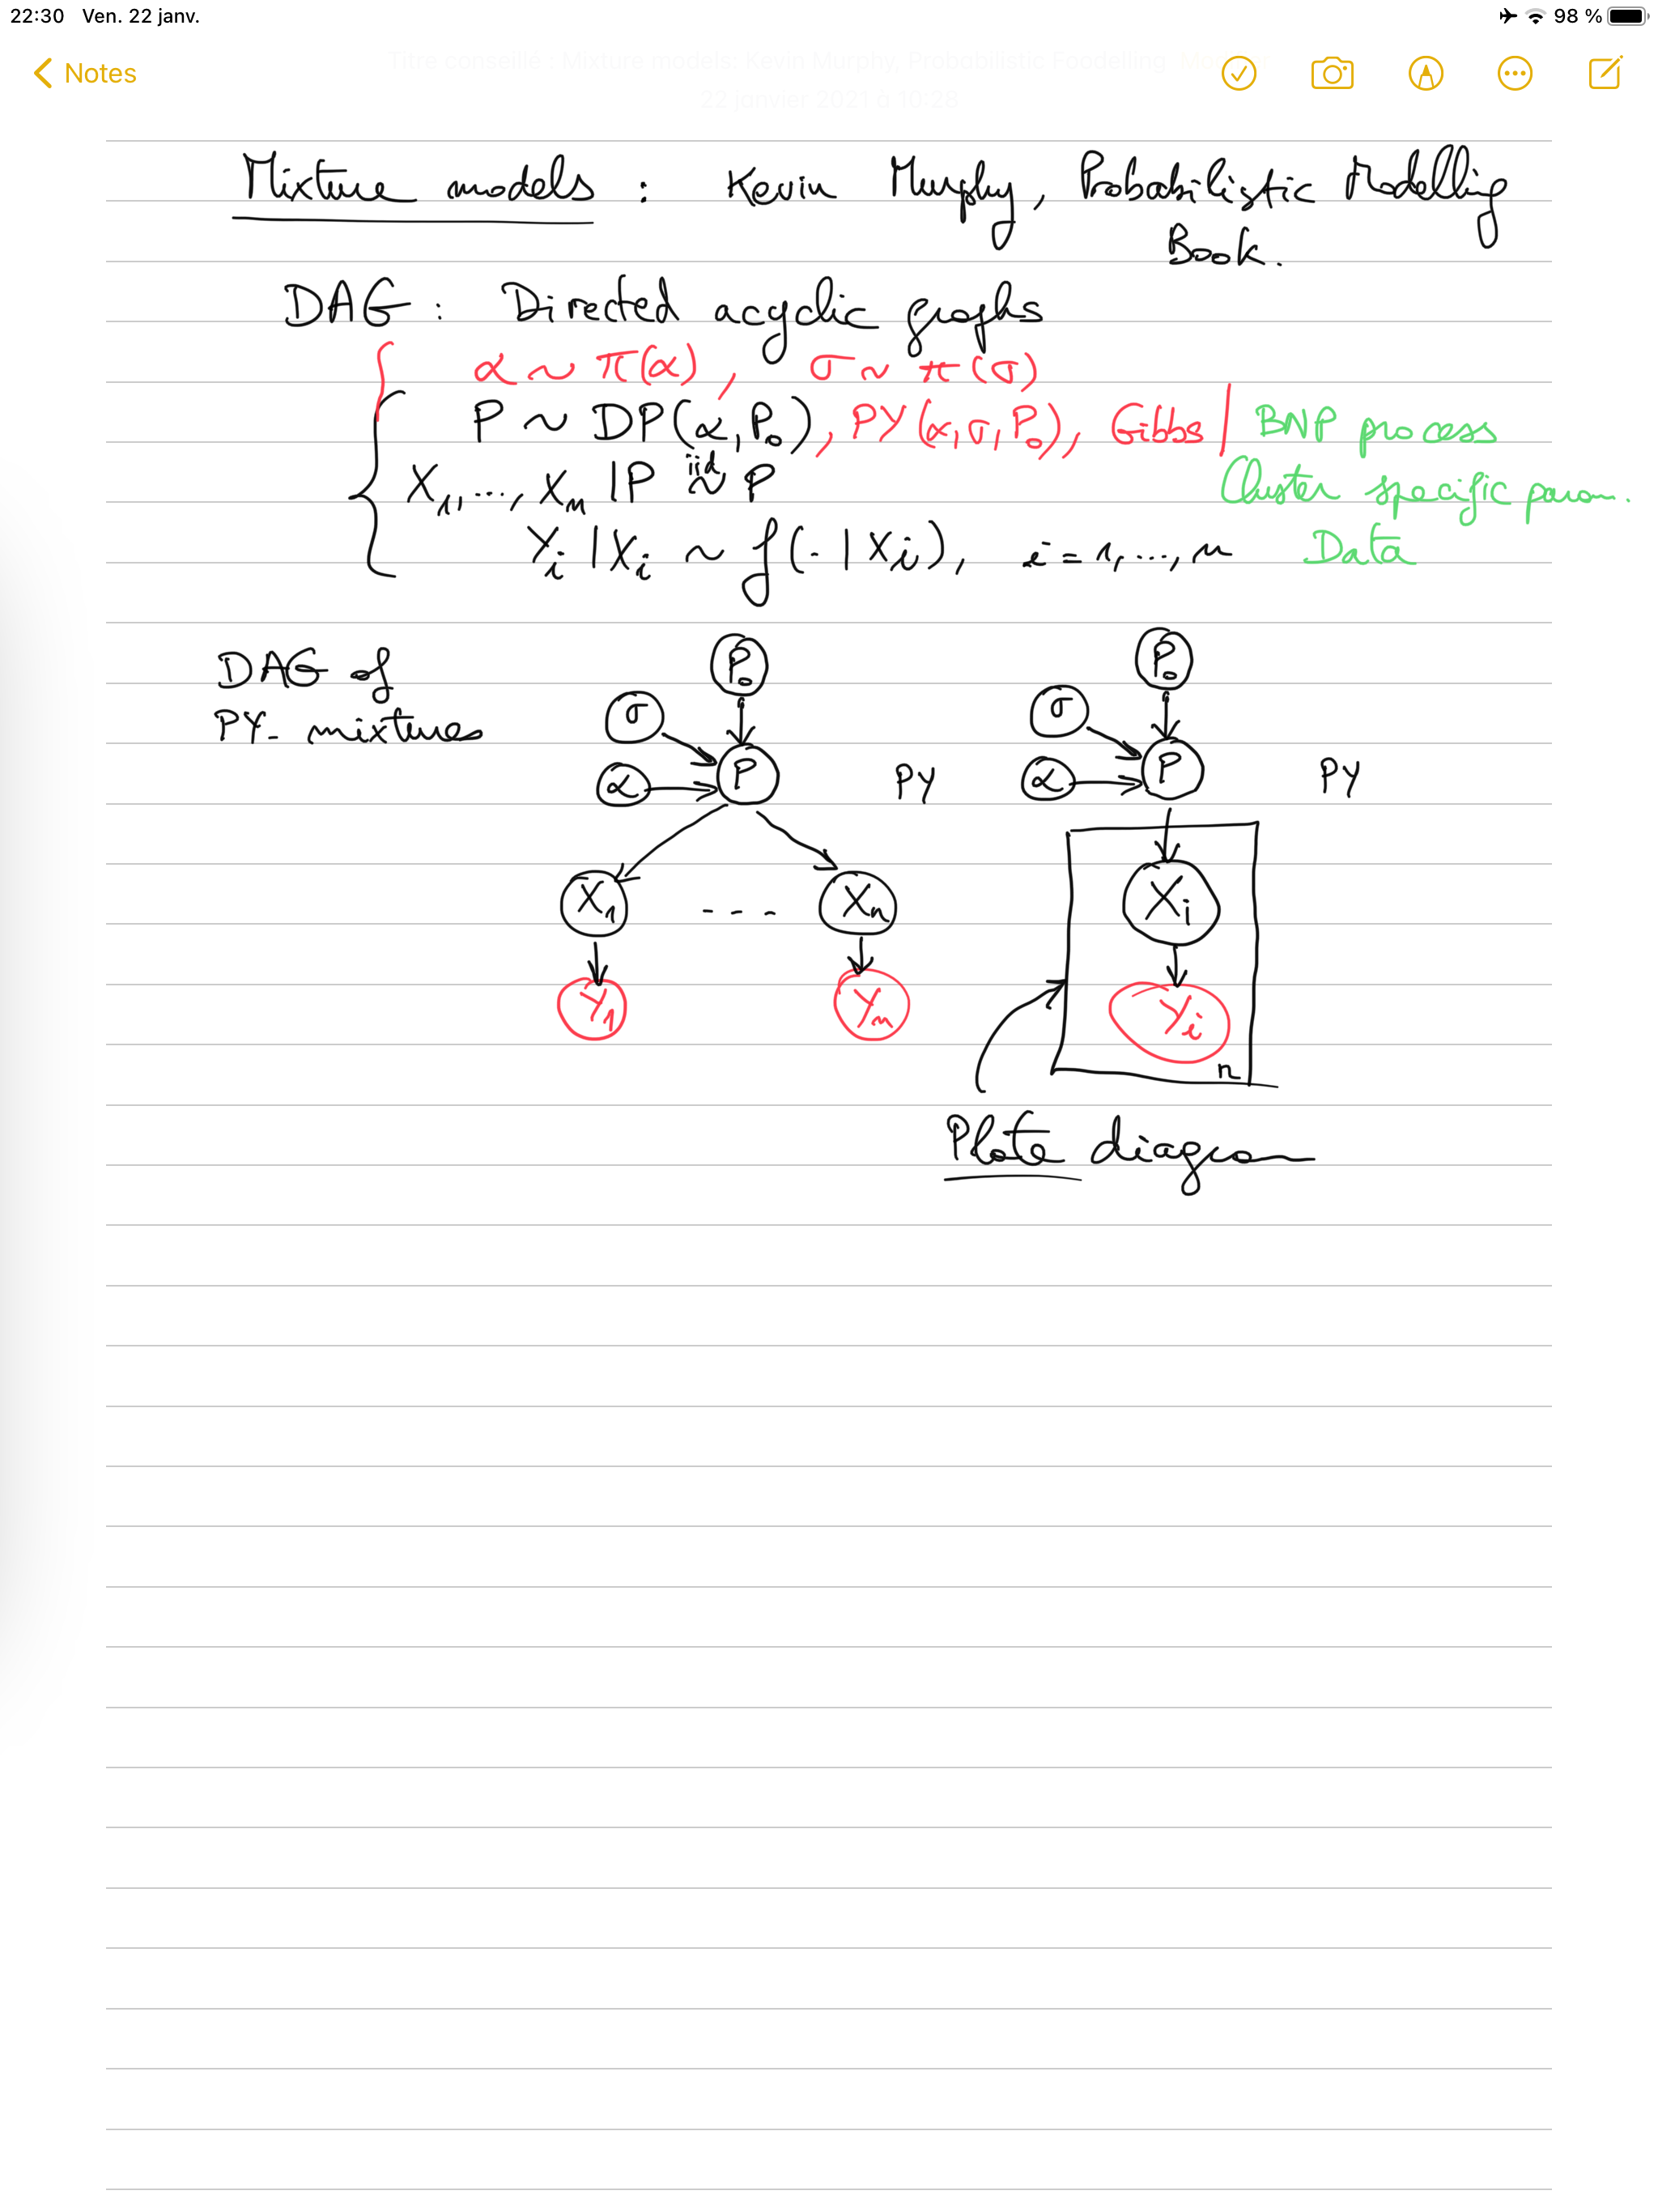 22:30 Ven. 22 janv. 98 %
Notes
Titre conseillé : Mixture models: Kevin Murphy, Probabilistic Foodelling
22 janvier 2021 à 10:28
Mixture models : Kevin Murphy, Probabilistic Modelling
Book.
DAG : Directed acyclic graphs
α ~ π(α), σ ~ π(σ)
P ~ DP(α, P₀), PY(α, σ, P₀), Gibbs | BNP process
X₁, ..., Xₙ | P iid ~ P Cluster specific param.
Yᵢ | Xᵢ ~ f(· | Xᵢ), i = 1, ..., n Data
DAG of
PY- mixtures
P₀ P₀
σ σ
α P PY α P PY
X₁ - - - Xₙ Xᵢ
Y₁ Yₙ Yᵢ
n
Plate diagram